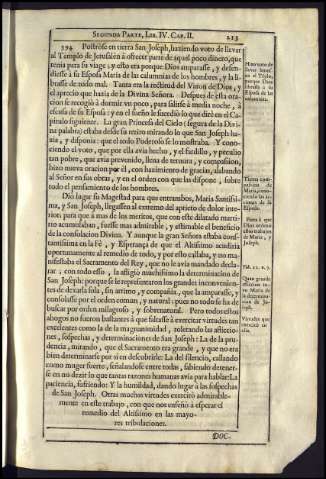 SEGUNDA PARTE, LIB. IV. CAP. II. 223
394 Postróse en tierra San Joseph, haziendo voto de llevar
al Templo de Jerusalén à ofrecer parte de aquel poco dinero, que
tenia para su viage; y esto era porque Dios amparasse, y defen-
diesse à su Esposa Maria de las calumnias de los hombres, y la li-
brasse de todo mal. Tanta era la rectitud del Varon de Dios, y
el aprecio que hazia de la Divina Señora. Despues de esta ora-
cion se recogió à dormir vn poco, para salirse à media noche, à
escusa de su Esposa: y en el sueño le sucedió lo que diré en el Ca-
pitulo siguiente. La gran Princesa del Cielo (segura de la Divi-
na palabra) estaba desde su retiro mirando lo que San Joseph ha-
zia, y disponia: que el todo Poderoso se lo mostraba. Y cono-
ciendo el voto, que por ella avia hecho, y el fardillo, y peculio
tan pobre, que avia prevenido, llena de ternura, y compassion,
hizo nueva oracion por èl, con hazimiento de gracias, alabando
al Señor en sus obras, y en el orden con que las dispone, sobre
todo el pensamiento de los hombres.
Dió lugar su Magestad para que entrambos, Maria Santissi-
ma, y San Joseph, llegassen al extremo del aprieto de dolor inte-
rior, para que à mas de los meritos, que con este dilatado marti-
rio acumulaban, fuesse mas admirable, y estimable el beneficio
de la consolacion Divina. Y aunque la gran Señora estaba cons-
tantissima en la Fè, y Esperança de que el Altissimo acudiria
oportunamente al remedio de todo, y por esto callaba, y no ma-
nifestaba el Sacramento del Rey, que no le avia mandado decla-
rar; con todo esso, la afligió muchissimo la determinacion de
San Joseph: porque se le representaron los grandes inconvenien-
tes de dexarla sola, sin arrimo, y compañia, que la amparasse, y
consolasse por el orden comun, y natural: pues no todo se ha de
buscar por orden milagroso, y sobrenatural. Pero todos estos
ahogos no fueron bastantes à que faltasse à exercitar virtudes tan
excelentes como la de la magnanimidad, tolerando las afliccio-
nes, sospechas, y determinaciones de San Joseph: La de la pru-
dencia, mirando, que el Sacramento era grande, y que no era
bien determinarse por sì en descubrirle: La del silencio, callando
como muger fuerte, señalandose entre todas, sabiendo detener-
se en no dezir lo que tantas razones humanas avia para hablar: La
paciencia, sufriendo: Y la humildad, dando lugar à las sospechas
de San Joseph. Otras muchas virtudes exercitó admirable-
mente en este trabajo, con que nos enseñò à esperar el
remedio del Altissimo en las mayo-
res tribulaciones.
DOC-